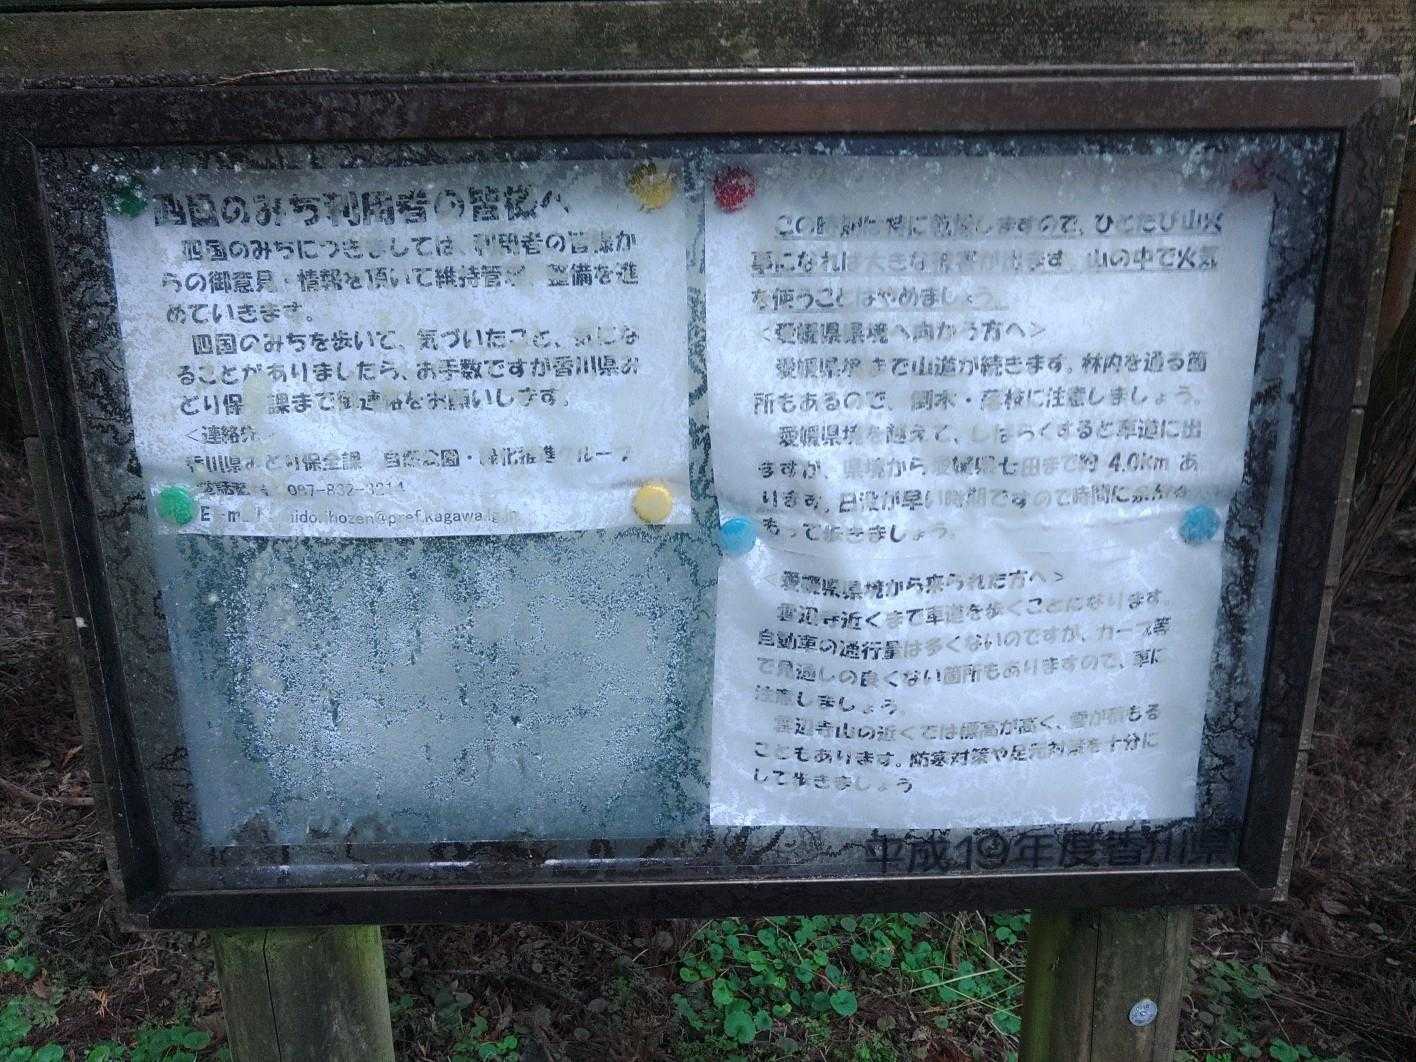 四国のみち利用者の皆様へ
四国のみちにつきましては、利用者の皆様か
らの御意見・情報を頂いて維持管理、整備を進
めていきます。
四国のみちを歩いて、気づいたこと、気にな
ることがありましたら、お手数ですが香川県み
どり保全課まで御連絡をお願いします。
<連絡先>
香川県みどり保全課 自然公園・緑化推進グループ
電話番号 087-832-3214
E-mail midorihozen@pref.kagawa.lg.jp
この時期は特に乾燥しますので、ひとたび山火
事になれば大きな被害が出ます。山の中で火気
を使うことはやめましょう。
<愛媛県県境へ向かう方へ>
愛媛県境まで山道が続きます。林内を通る箇
所もあるので、倒木・落枝に注意しましょう。
愛媛県境を越えて、しばらくすると車道に出
ますが、県境から愛媛県七田まで約 4.0Km あ
ります。日没が早い時期ですので時間に余裕を
もって歩きましょう。
<愛媛県県境から来られた方へ>
雲辺寺近くまで車道を歩くことになります。
自動車の通行量は多くないのですが、カーブ等
で見通しの良くない箇所もありますので、車に
注意しましょう。
雲辺寺山の近くでは標高が高く、雪が積もる
こともあります。防寒対策や足元対策を十分に
して歩きましょう
平成19年度香川県